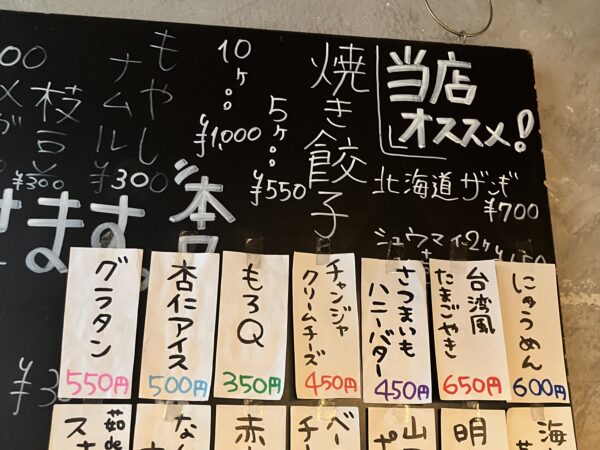 当店
オススメ!
北海道ザンギ
¥700
シュウマイ2ケ
焼き餃子
5ケ
¥550
10ケ
¥1,000
もやし
ナムル
¥300
枝豆
¥300
ます。
本日
にゅうめん
600円
台湾風
たまごやき
650円
さつまいも
ハニーバター
450円
チャンジャ
クリームチーズ
450円
もろQ
350円
杏仁アイス
500円
グラタン
550円
海
明
山
赤
なん
茹de